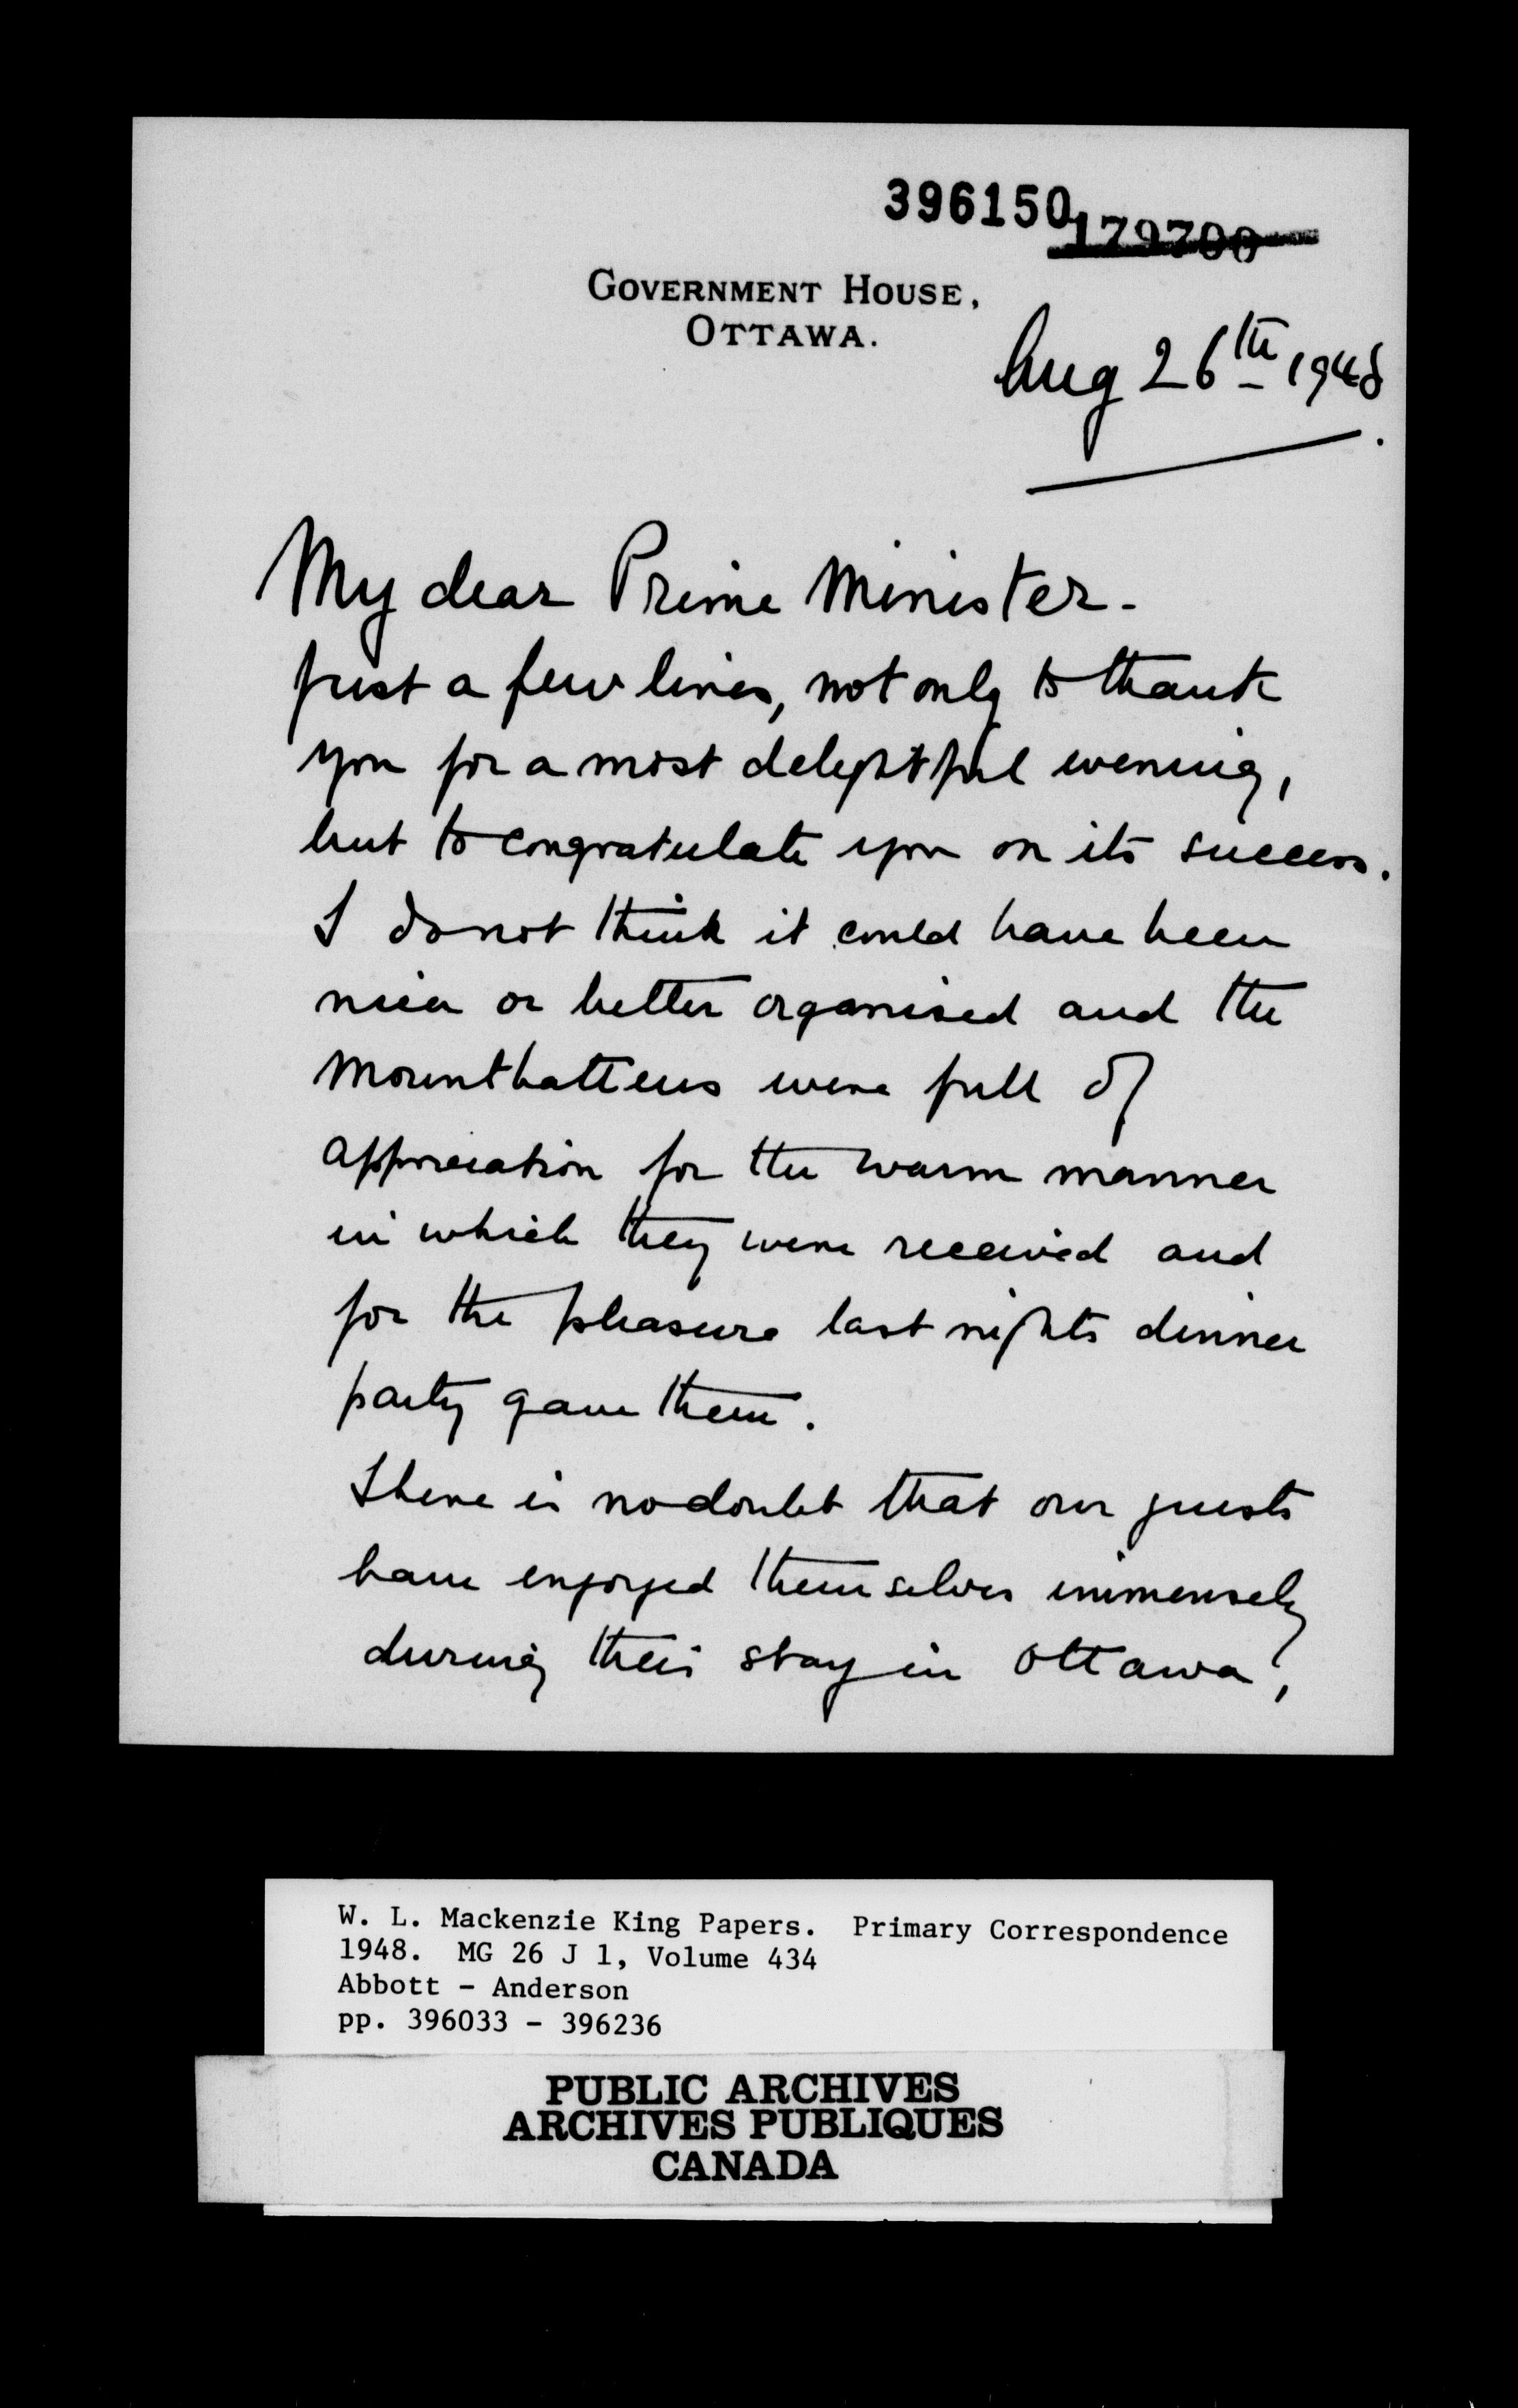 396150
179700
GOVERNMENT HOUSE,
OTTAWA.
Aug 26th 1948.
My dear Prime Minister -
Just a few lines, not only to thank
you for a most delightful evening,
but to congratulate you on its success.
I do not think it could have been
nicer or better organised and the
Mountbattens were full of
appreciation for the warm manner
in which they were received and
for the pleasure last nights dinner
party gave them.
There is no doubt that our guests
have enjoyed themselves immensely
during their stay in Ottawa,
W. L. Mackenzie King Papers. Primary Correspondence
1948. MG 26 J 1, Volume 434
Abbott - Anderson
pp. 396033 - 396236
PUBLIC ARCHIVES
ARCHIVES PUBLIQUES
CANADA